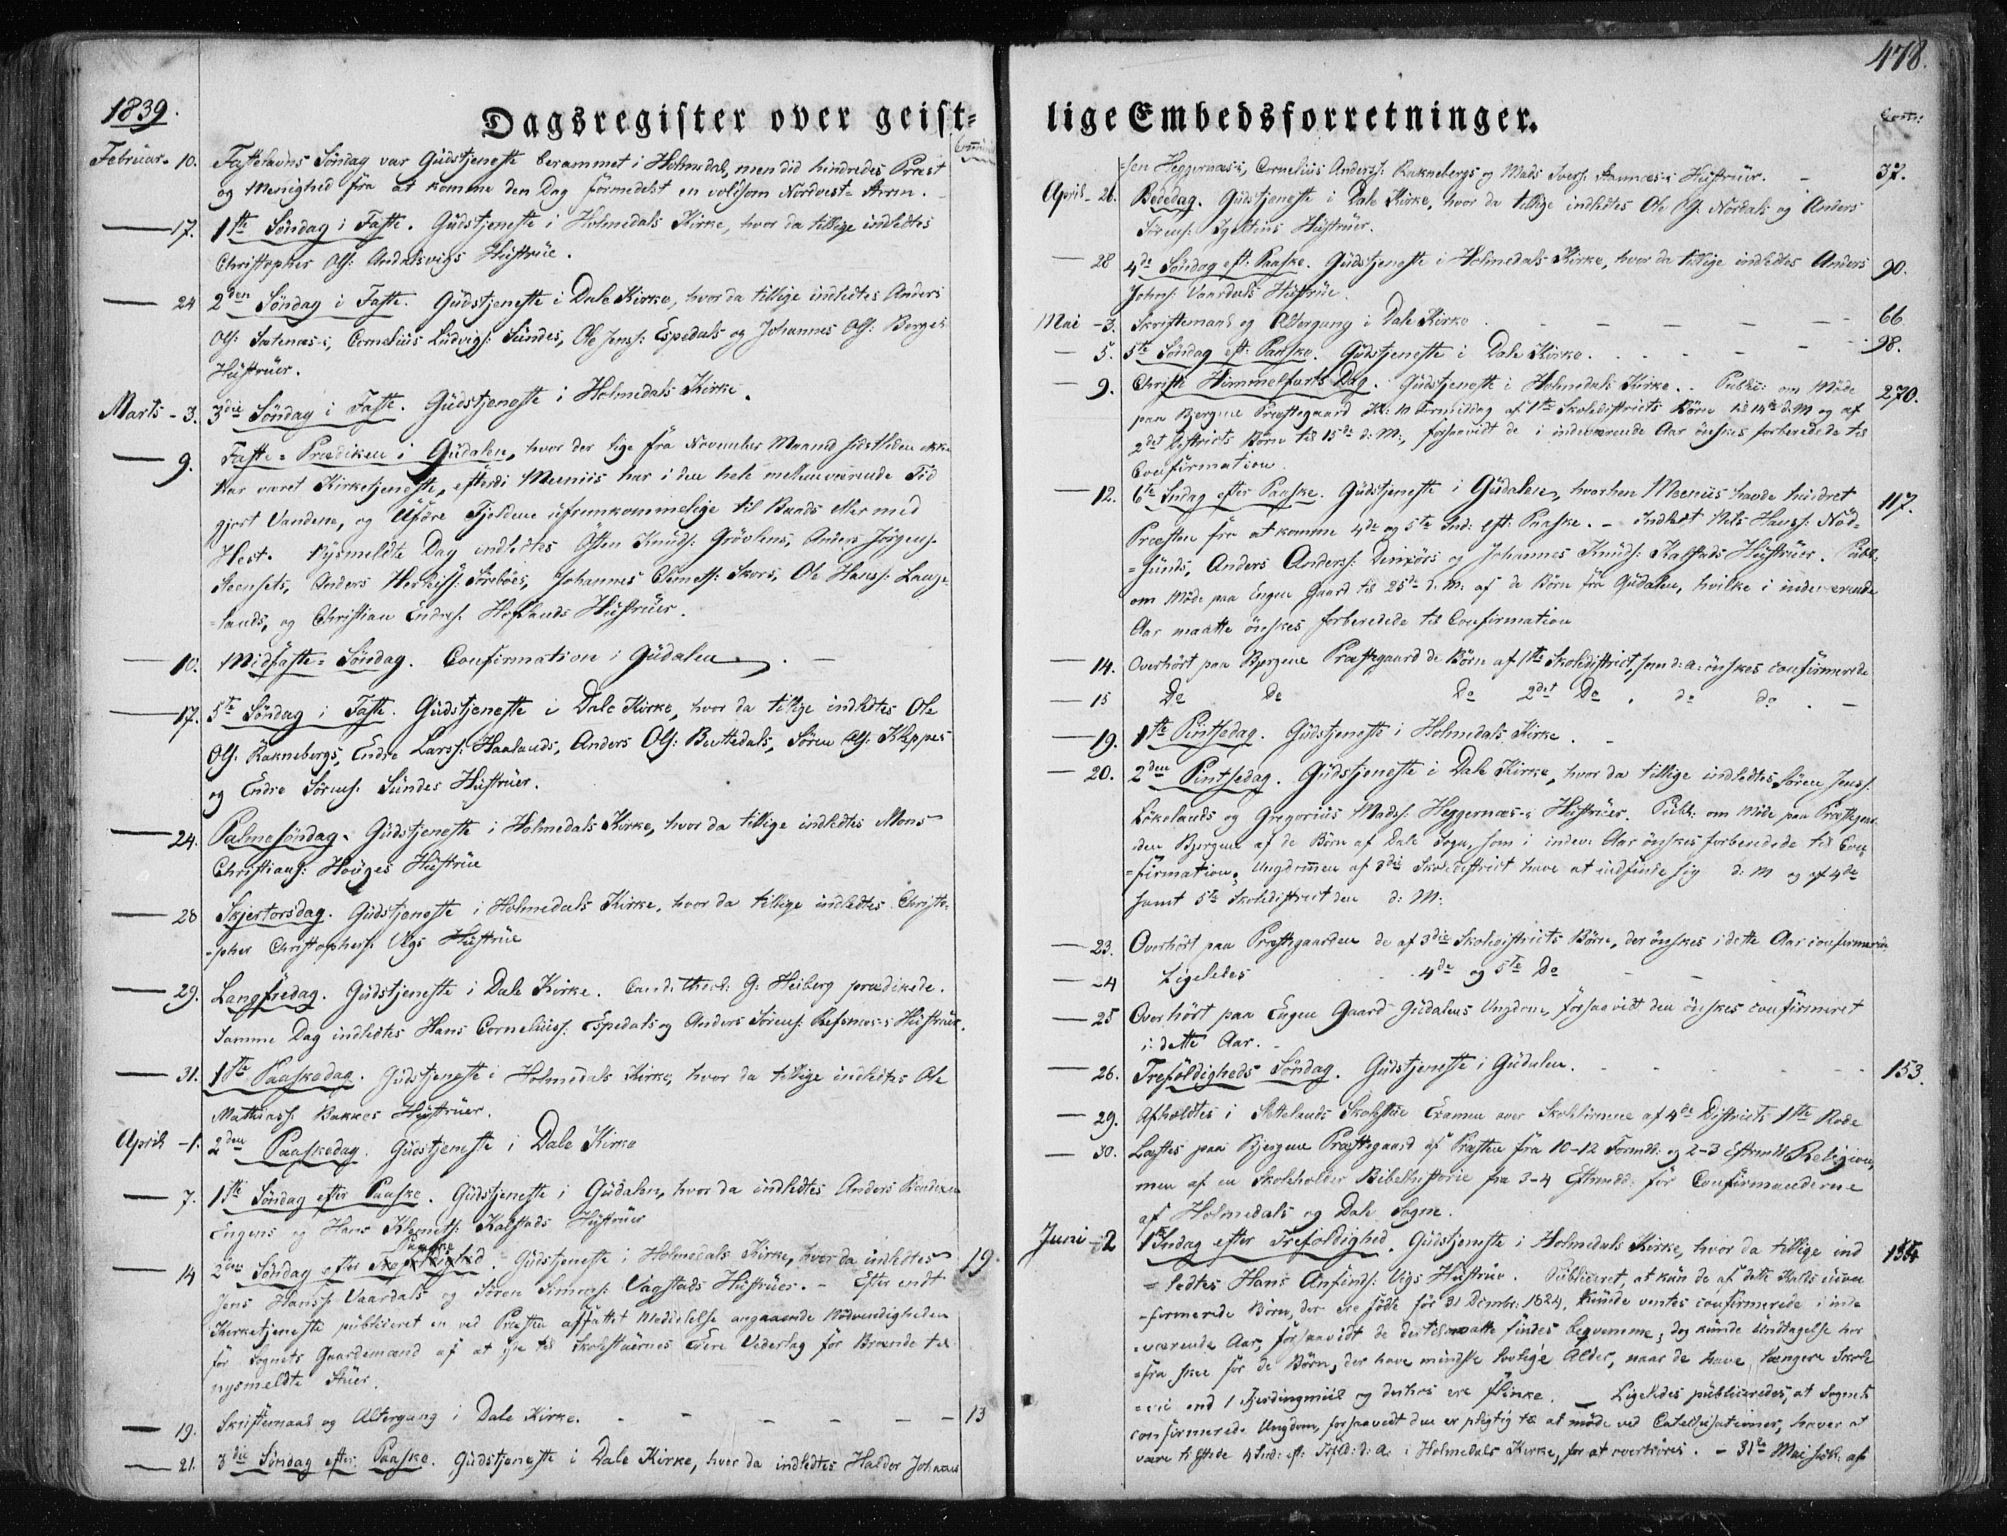 1839.
Dagsregister over geist-
Februar. 10. Fastelavns Søndag var Gudstjeneste berammet i Holmedal, men did hindredes Præst
og Menighed fra at komme den Dag formedelst en voldsom Nordvest-Storm.
— 17. 1ste Søndag i Faste. Gudstjeneste i Holmedals Kirke, hvor da tillige indledtes
Christopher Ols: Andalsvigs Hustrue.
— 24 2den Søndag i Faste. Gudstjeneste i Dale Kirke, hvor da tillige indledtes Anders
Ols: Sætenæs-s, Cornelius Ludvigs: Sundes, Ole Jenss: Espedals og Johannes Ols: Berges
Hustruer.
Marts - 3. 3die Søndag i Faste. Gudstjeneste i Holmedals Kirke.
— 9. Faste-Prædiken i Gudalen, hvor der lige fra November Maaned sidstleden ikke
har været Kirketjeneste, efterdi Meeniis har i den hele mellemværende Tid
gjort Vandene, og Uføre Fjeldene ufremkommelige til Baads eller med
Hest. Nysmeldte Dag indledtes Østen Knuds: Grøvlens, Anders Jørgens:
Steensets, Anders Herleiss: Strebøes, Johannes Clemets: Skors, Ole Hanss: Lange-
-lands, og Christian Endres: Hoflands Hustruer.
— 10. Midfaste-Søndag. Confirmation i Gudalen.
— 17. 5te Søndag i Faste. Gudstjeneste i Dale Kirke, hvor da tillige indledtes Ole
Ols: Raknebergs, Endre Larss: Haalands, Anders Ols: Buttedals, Søren Ols: Kleppes
og Endre Sørens: Sundes Hustruer.
— 24. Palmesøndag. Gudstjeneste i Holmedals Kirke, hvor da tillige indledtes Mons
Christians: Houges Hustrue
— 28 Skjertorsdag. Gudstjeneste i Holmedals Kirke, hvor da tillige indledtes Christo-
-pher Christophers: Vigs Hustrue
— 29. Langfredag. Gudstjeneste i Dale Kirke. Cand: theol: G: Heiberg prædikede.
Samme Dag indledtes Hans Corneliuss: Espedals og Anders Sørens: Refsnæs-s Hustruer.
— 31. 1ste Paaskedag. Gudstjeneste i Holmedals Kirke, hvor da tillige indledtes Ole
Mathiass: Bakkes Hustruer.
April - 1. 2den Paaskedag. Gudstjeneste i Dale Kirke
— 7. 1ste Søndag efter Paaske. Gudstjeneste i Gudalen, hvor da indledtes Anders
Engens og Hans Klemets: Kalstads Hustruer
— 14 2den Søndag efter Paaske. Gudstjeneste i Holmedals Kirke, hvor da indledtes 19.
Jens Hanss: Vaardals og Søren Simons: Vagstads Hustruer. - Efter endt
Kirketjeneste publiceret en ved Præsten affattet Meddelelse angaaende Nødvendigheden
for Sognets Gaardemænd af at yde til Skolestuernes Eiere Vederlag for Brænde til
nysmeldte Stuer.
— 19. Skriftemaal og Altergang i Dale Kirke. - - - - - - 13
— 21. 3die Søndag efter Paaske. Gudstjeneste i Dale Kirke, hvor da indledtes Haldor Johannes
478.
lige Embedsforretninger.
-sen Heggernæs-s, Cornelius Anderss: Raknebergs og Mads Ivers: Hustruer. - 37.
April - 26. Bededag. Gudstjeneste i Dale Kirke, hvor da tillige indledtes Ole Nordals og Anders
Sørens: Hustruer.
— 28 4de Søndag eft: Paaske. Gudstjeneste i Holmedals Kirke, hvor da tillige indledtes Anders 90.
Johns: Vaardals Hustrue.
Mai - 3. Skriftemaal og Altergang i Dale Kirke. - - - - - 66
— 5. 5te Søndag eft: Paaske. Gudstjeneste i Dale Kirke. - - - - 98.
— 9. Christi Himmelfarts Dag. Gudstjeneste i Holmedals Kirke. Public: om Møde 270.
paa Bjergene Præstegaard Kl: 10 Formiddag af 1ste Skoledistricts Børn til 14de d:M og af
2det Districts Børn til 15de d:M:, forsaavidt de i indeværende Aar ønskes forberedede til
Confirmation.
— 12. 6te Sndag efter Paaske. Gudstjeneste i Gudalen, hvorhen Meeniis havde hindret 117.
Præsten fra at komme 4de og 5te Snd: eft: Paaske. - Indledt Nils Hanss: Nød-
-sunds, Anders Anderss: og Johannes Knuds: Kalstads Hustruer. Publ:
om Møde paa Engen Gaard til 25de d:M: af de Børn fra Gudalen, hvilke i indeværende
Aar maatte ønskes forberedede til Confirmation
— 14. Overhørt paa Bjergene Præstegaard de Børn af 1ste Skoledistrict, som d:a: ønskes confirmerede
— 15 Do Do Do 2det Do. do do. -
— 19. 1ste Pintsedag. Gudstjeneste i Holmedals Kirke. -
— 20. 2den Pintsedag. Gudstjeneste i Dale Kirke, hvor da tillige indledtes Søren Jenss:
Løkelands og Gregorius Madss: Heggernæs-s Hustruer. Publ: om Møde paa Præstegaar-
den Bjergene af de Børn af Dale Sogn, som i indev: Aar ønskes forberedede til Con-
-firmation; Ungdommen af 3die Skoledistrict have at indfinde sig d: M og af 4de
samt 5te Skoledistrict den d: M:
— 23. Overhørt paa Præstegaarden de af 3die Skoledistricts Børn, der ønskes i dette Aar confirmerede
— 24 Ligeledes 4de og 5te Do - -
— 25 Overhørt paa Engen Gaard Gudalens Ungdom, forsaavidt den ønskes confirmeret
i dette Aar. -
— 26. Trefoldigheds Søndag. Gudstjeneste i Gudalen. - - - - - 153.
— 29. Afholdtes i Stettelands Skolestue Examen over Skolebørnene af 4de Districts 1ste Rode
— 30. Læstes paa Bjergene Præstegaard af Præsten fra 10-12 Formdd: og 2-3 Eftmdd Religion,
men af en Skoleholder Bibelhistorie fra 3-4 Eftmdd: for Confirmanderne
af Holmedals og Dale Sogne.
Juni - 2 1ste Sndag efter Trefoldighed. Gudstjeneste i Holmedals Kirke, hvor da tillige ind 154
-ledtes Hans Anfinds: Vigs Hustrue. Publiceret, at kun de af dette Kalds ucon
-firmerede Børn, der ere fødte før 31 Decmbr: 1824, kunde ventes confirmerede i inde
-værende Aar, forsaavidt de dertil maatte findes beqvemme; dog kunde Undtagelse her
-fra skee for de Børn, der have mindste lovlige Alder, naar de have længere Skole
-vei end 1 Fjerdingmiil og derhos ere flinke. - Ligeledes publiceredes, at Sognets
confirmerede Ungdom, forsaavidt den er pligtig til at møde ved Catechisationer, haver at
være tilstede 4 Snd: eft: Tref: d: a: i Holmedals Kirke, for at overhøres. - 31te Mai af